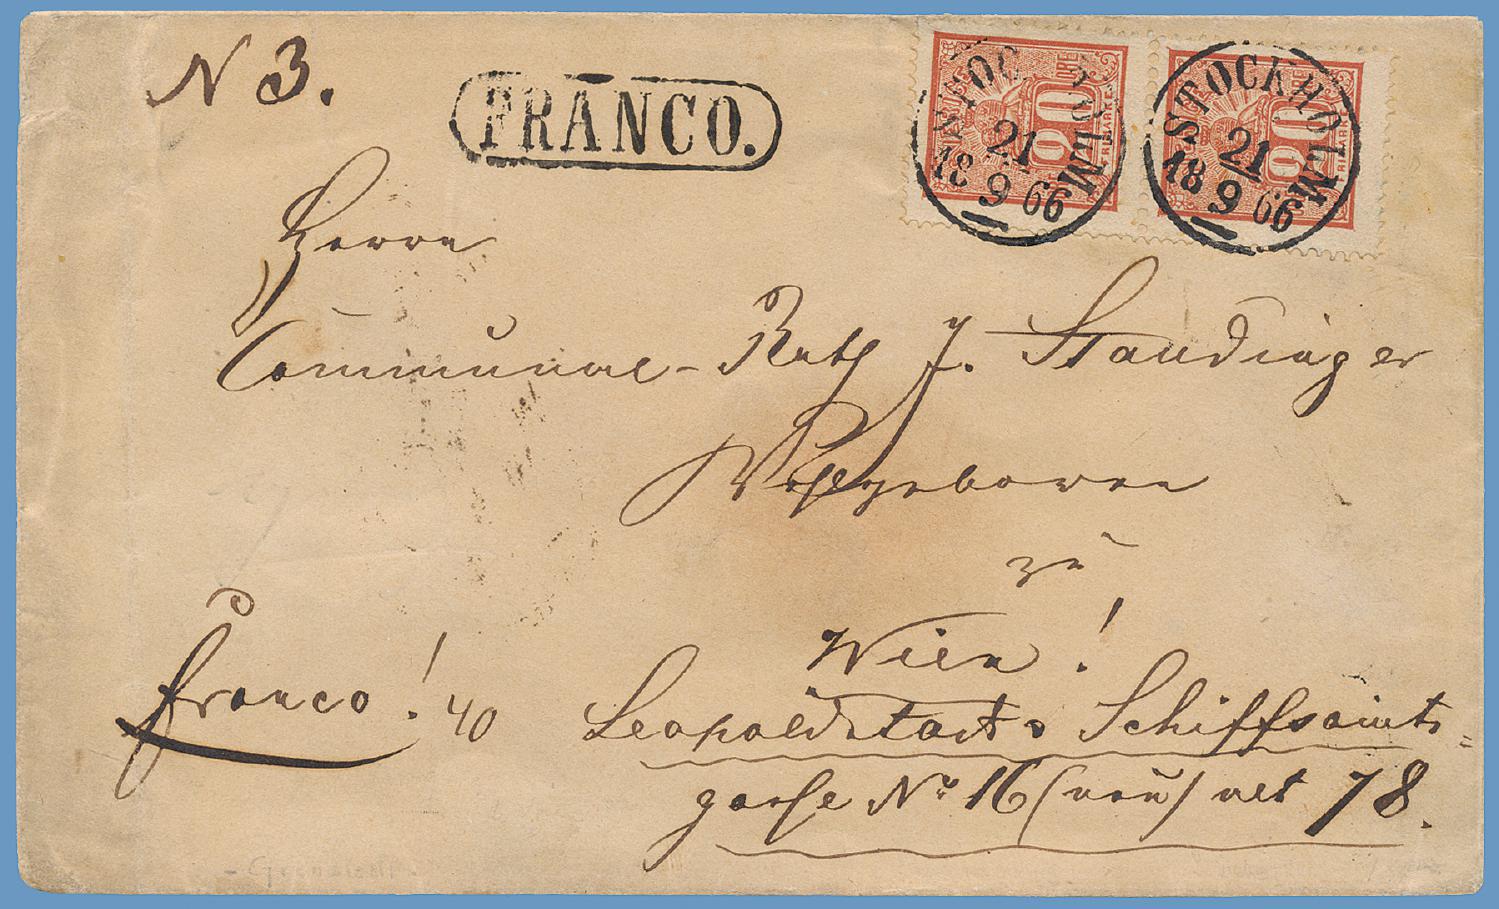 N 3.
FRANCO.
STOCKHOLM
21
18 9 66
STOCKHOLM
21
18 9 66
20
20
FRIMÄRKE
Herrn
Communal-Rath J. Staudinger
Wohlgeboren
zu
Wien!
franco! 40
Leopoldstadt. Schiffsamts=
gasse No 16 (neu) alt 78.